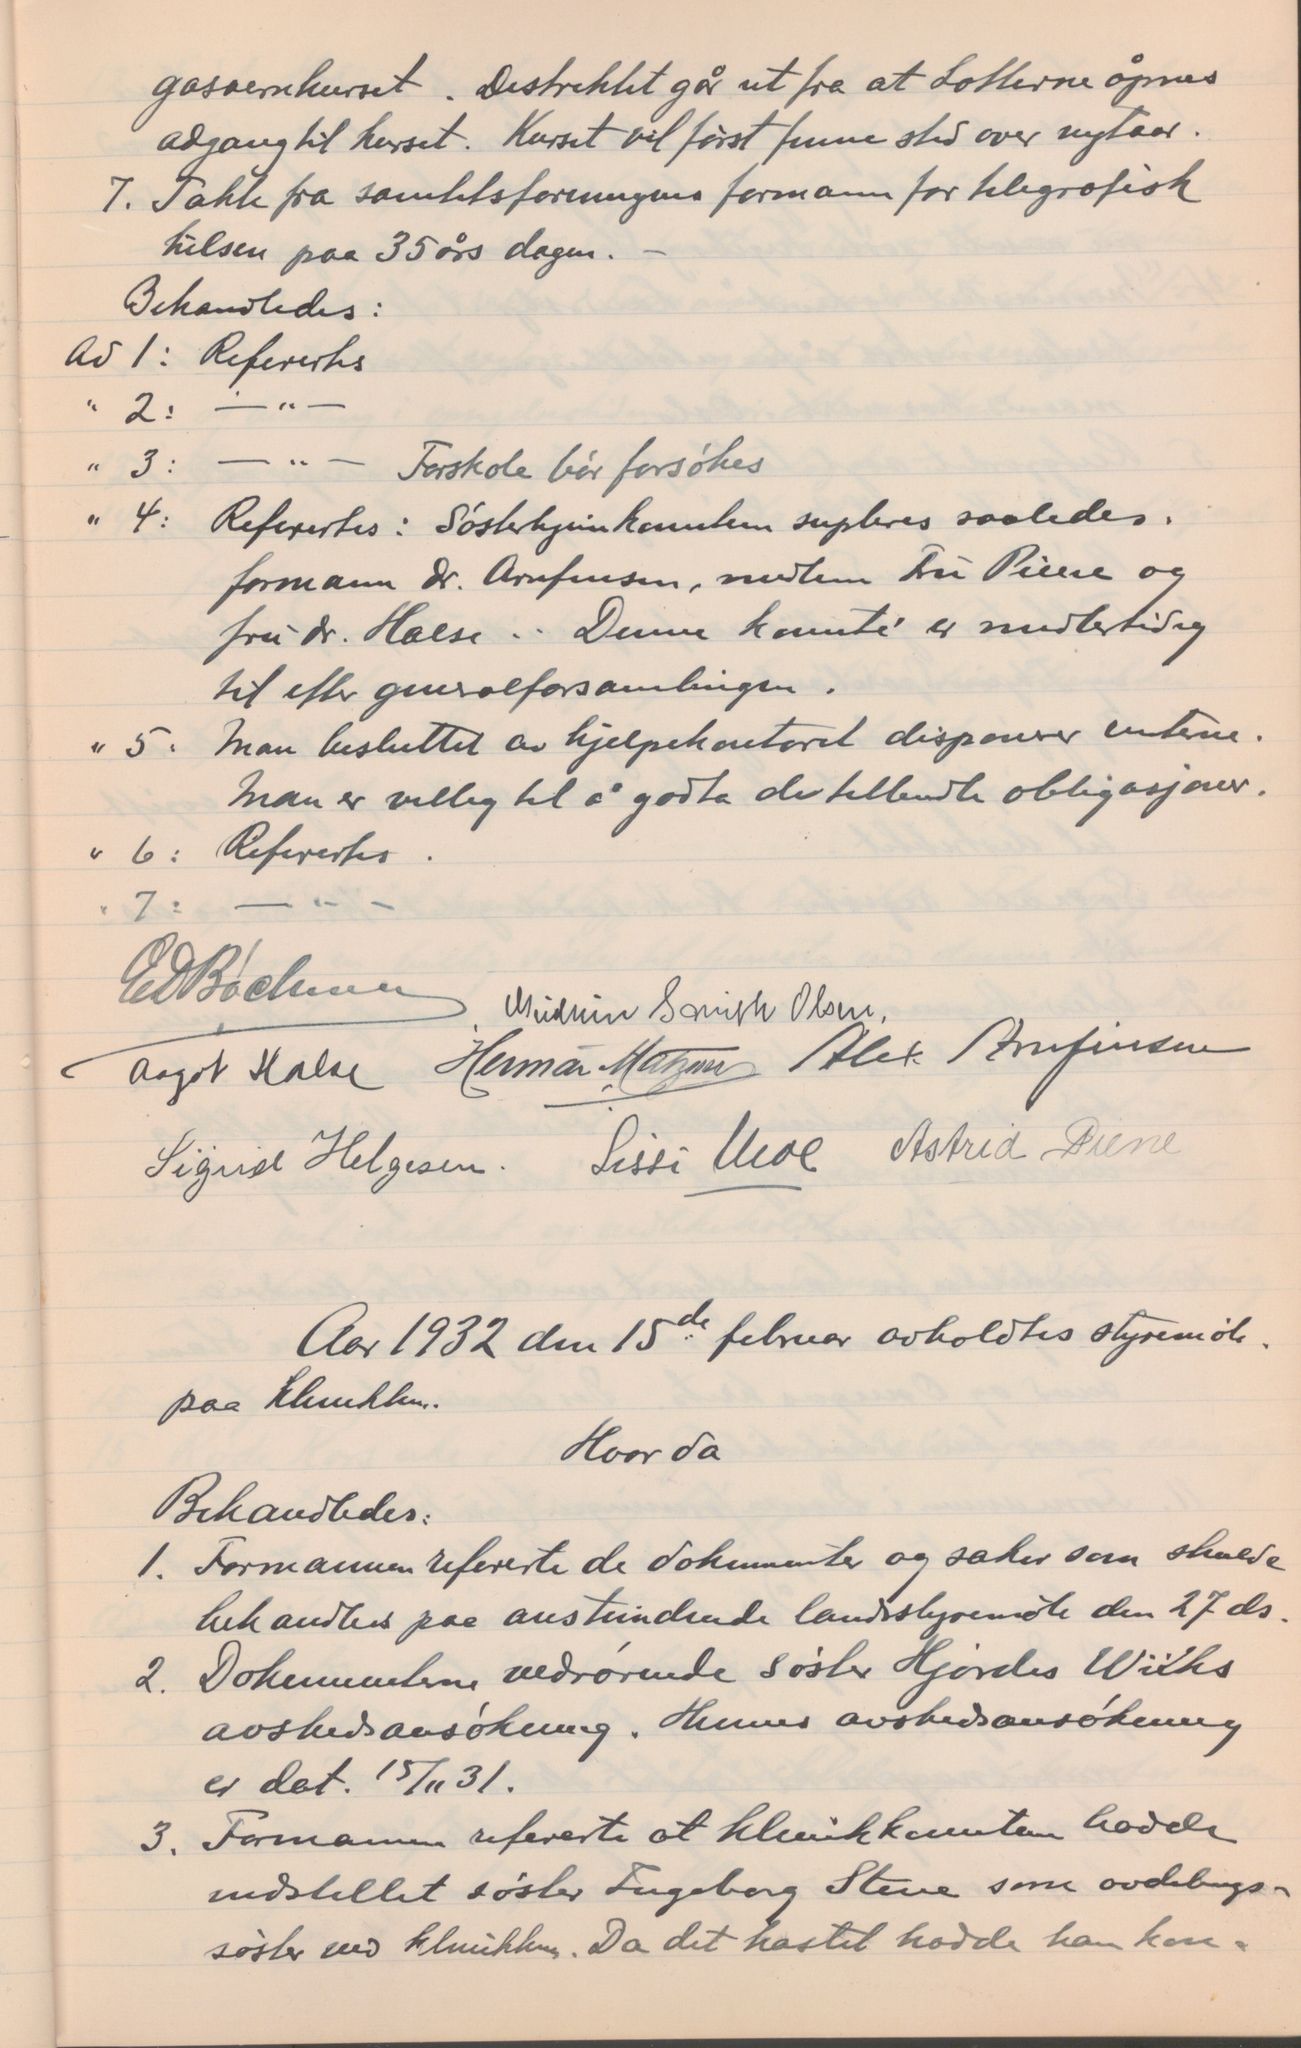 gasvernkurset. Destriktet går ut fra at Lotterne åpnes
adgang til kurset. Kurset vil først finne sted over nytaar.
7. Takk fra samlagsforeningens formann for telegrafisk
hilsen paa 35 års dagen. –
Behandledes:
Ad 1: Referertes
" 2: — " —
" 3: — " — Forskole bör forsökes
" 4: Referertes: Søsterhjemkomiteen supleres saaledes.
formann dr. Arnfinsen, medlem Fru Piene og
fru dr. Halse .. Denne komité er midlertidig
til efter generalforsamlingen.
" 5. Man besluttet av hjelpekontoret disponerer renterne.
Man er villeg til å godta de tillendte obligasjoner.
" 6: Referertes.
" 7: — " —
ED Bøckman
Gudrun Smith Olsen.
Aagot Halse Herman Matzow Alex Arnfinsen
Sigrid Helgesen. Lissi Moe Astrid Piene
Aar 1932 den 15de februar avholdtes styremöte.
paa klinikken.
Hvor da
Behandledes:
1. Formannen refererte de dokumenter og saker som skulde
behandles paa anstundende landsstyremöte den 27 ds.
2. Dokumenterne vedrørende søster Hjørdis Wiiks
avskedsansökning. Hennes avskedsansökning
er dat. 15/11 31.
3. Formannen refererte at klinikkomiteen hadde
indstillet søster Ingeborg Stene som avdelings-
søster ved klinikken. Da det hastet hadde han kon-